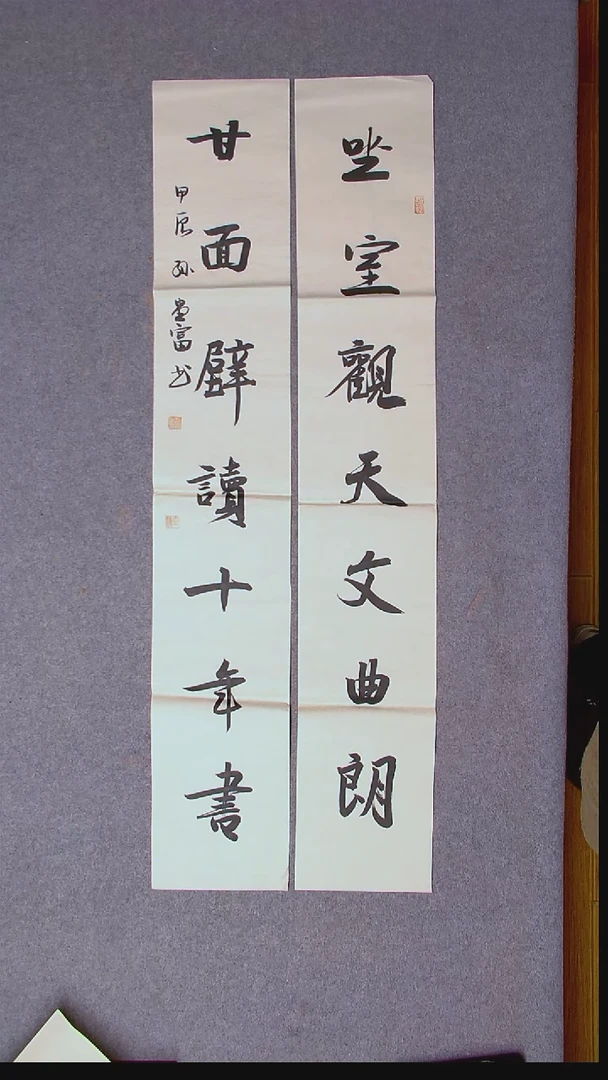 坐室觀天文曲朗
甘面壁讀十年書
甲辰 孫貴富书